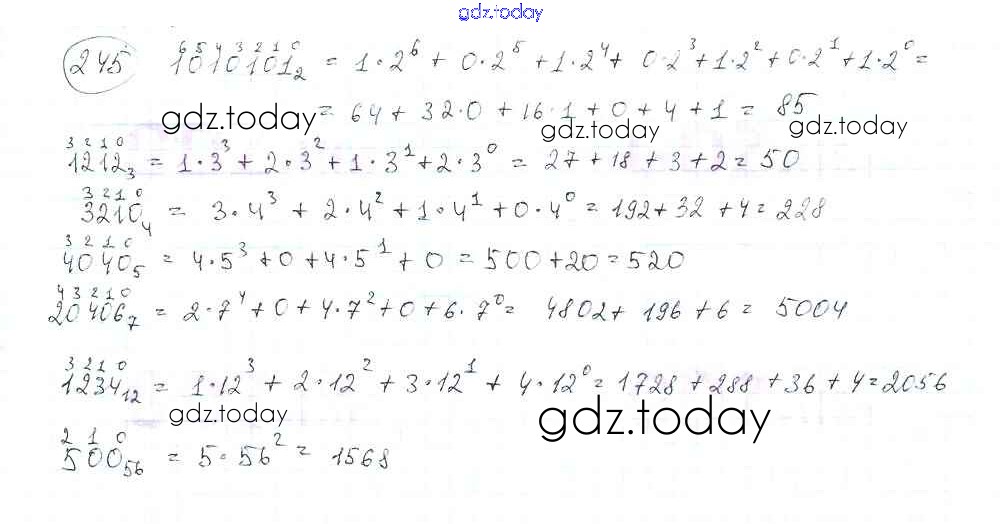 gdz.today
245 ⁶1⁵0⁴1³0²1¹0⁰1₂ = 1·2⁶ + 0·2⁵ + 1·2⁴ + 0·2³ + 1·2² + 0·2¹ + 1·2⁰ =
= 64 + 32·0 + 16·1 + 0 + 4 + 1 = 85
gdz.today gdz.today gdz.today
3 2 1 0
1212₃ = 1·3³ + 2·3² + 1·3¹ + 2·3⁰ = 27 + 18 + 3 + 2 = 50
3 2 1 0
3210₄ = 3·4³ + 2·4² + 1·4¹ + 0·4⁰ = 192 + 32 + 4 = 228
3 2 1 0
4040₅ = 4·5³ + 0 + 4·5¹ + 0 = 500 + 20 = 520
4 3 2 1 0
20406₇ = 2·7⁴ + 0 + 4·7² + 0 + 6·7⁰ = 4802 + 196 + 6 = 5004
3 2 1 0
1234₁₂ = 1·12³ + 2·12² + 3·12¹ + 4·12⁰ = 1728 + 288 + 36 + 4 = 2056
gdz.today gdz.today
2 1 0
500₅₆ = 5·56² = 1568